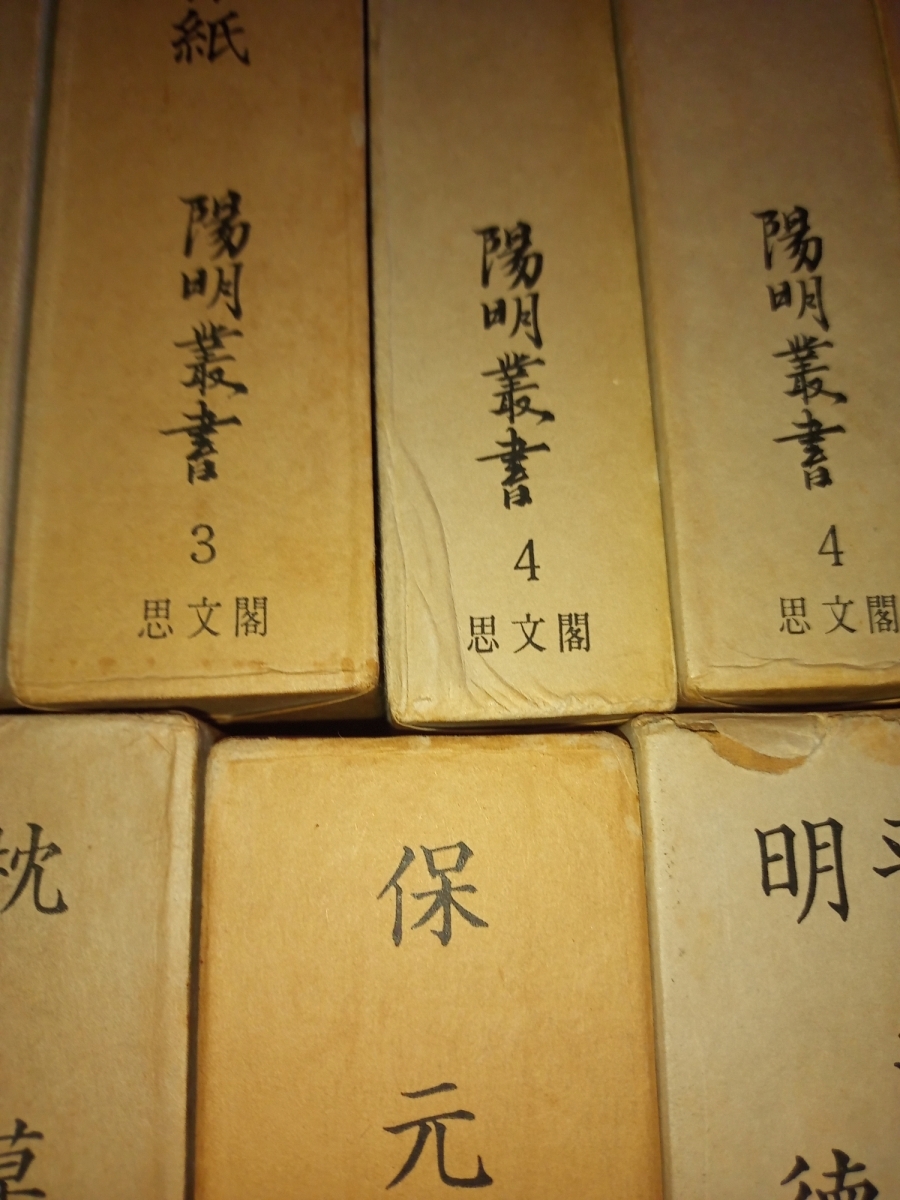 紙
陽明叢書
3
思文閣
陽明叢書
4
思文閣
陽明叢書
4
思文閣
枕草
保元
平
明徳